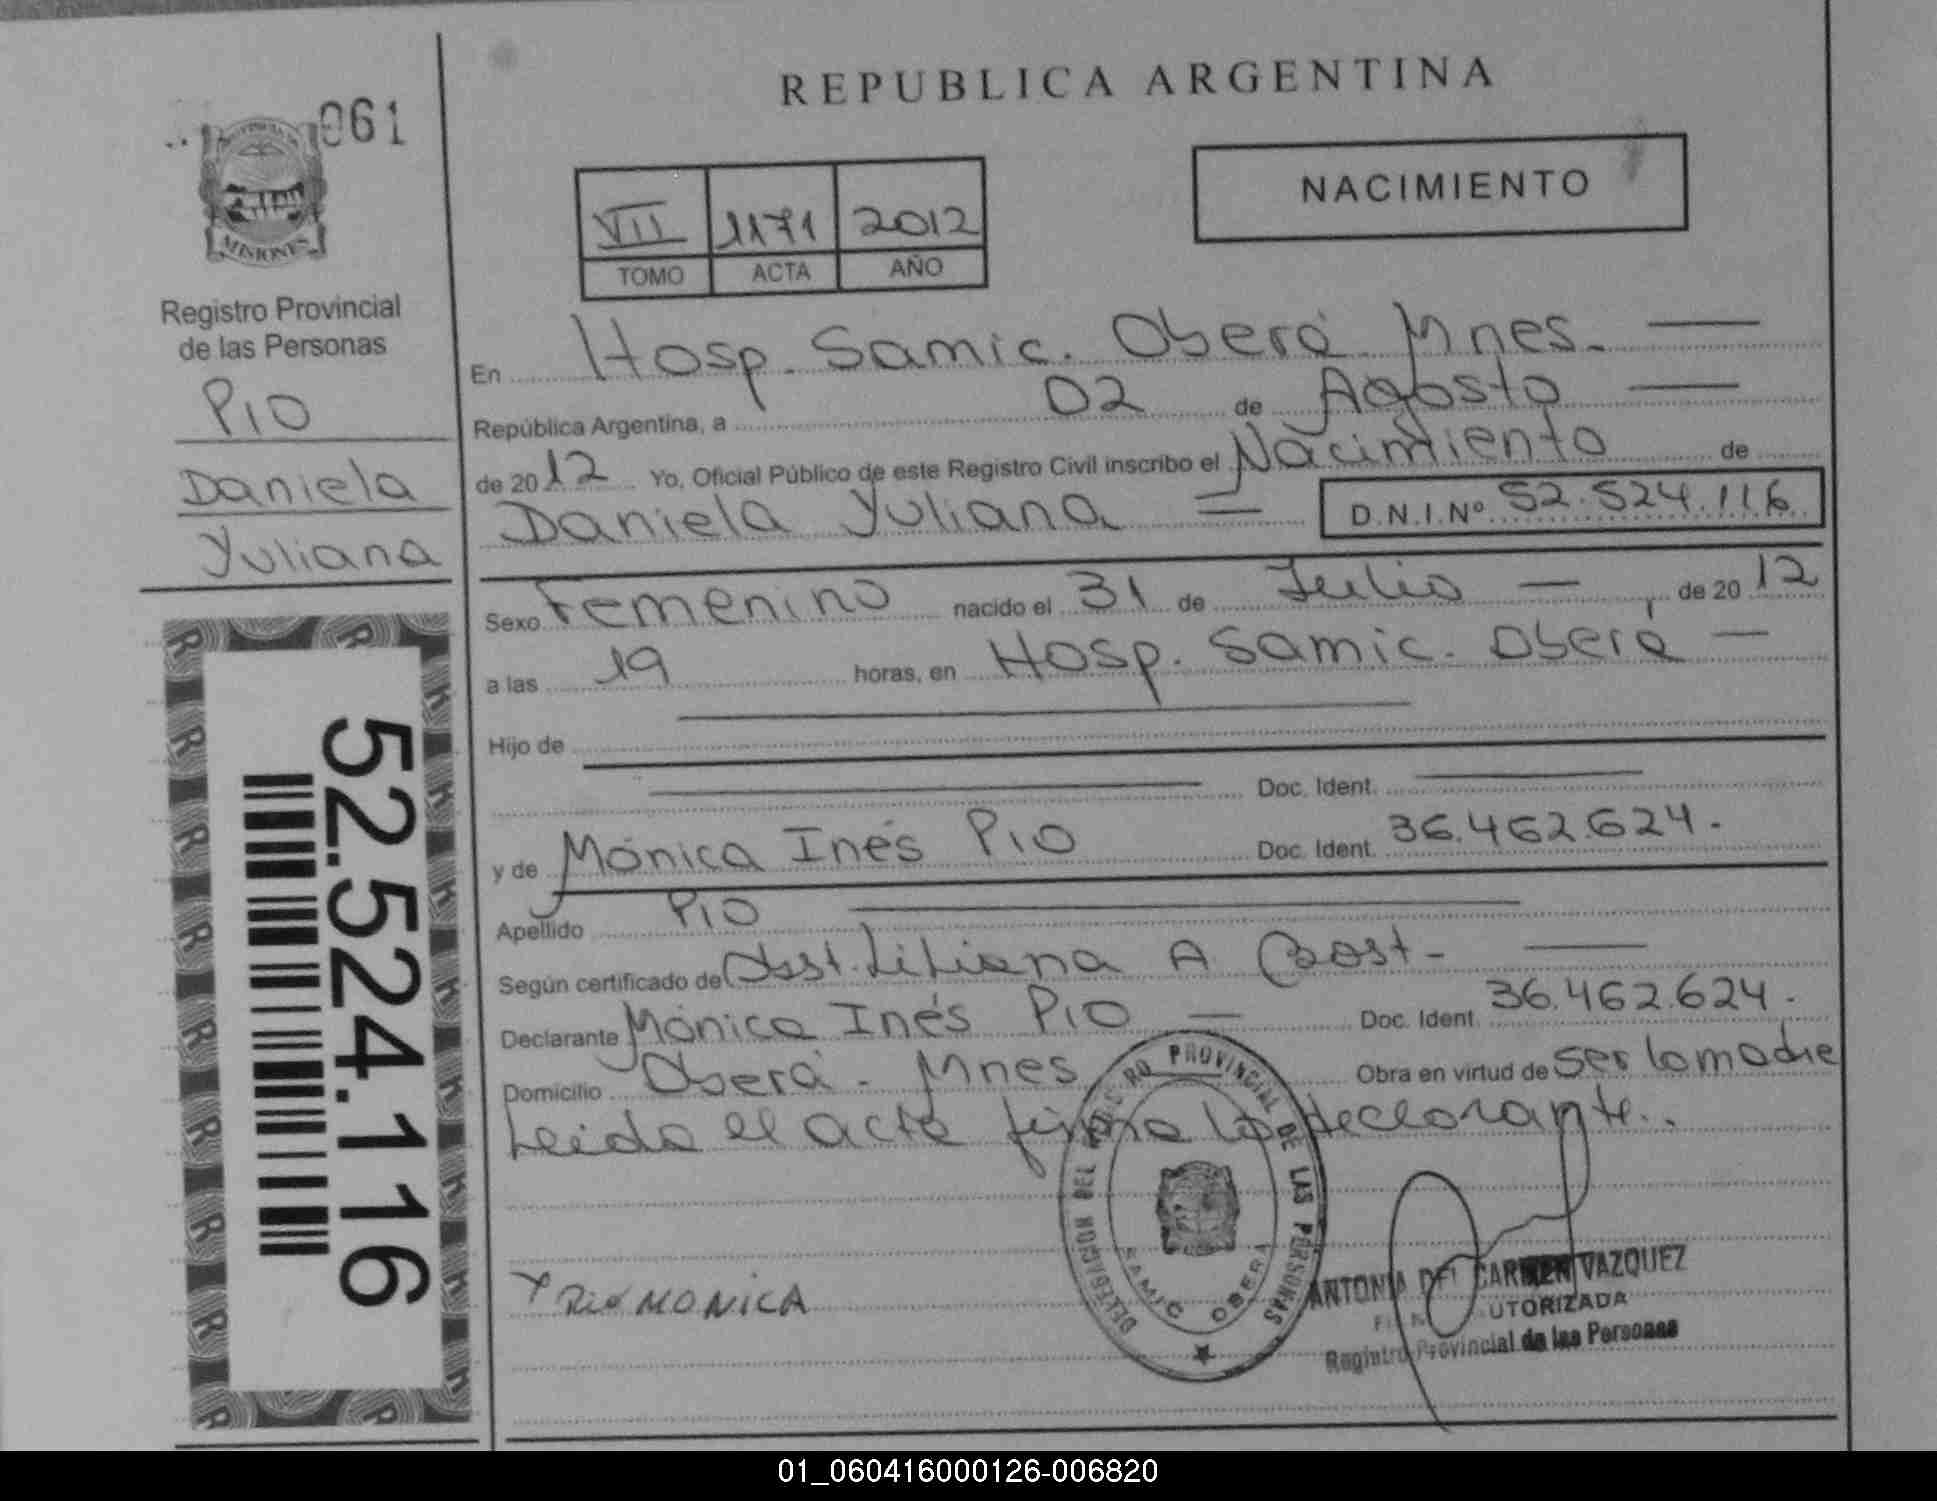 REPUBLICA ARGENTINA
061
MISIONES
Registro Provincial
de las Personas
Pio
Daniela
Yuliana
52.524.116
NACIMIENTO
VII 1171 2012
TOMO ACTA AÑO
En Hosp. Samic. Oberá Mnes.
República Argentina, a 02 de Agosto
de 2012 Yo, Oficial Público de este Registro Civil inscribo el Nacimiento de
Daniela Yuliana D.N.I.Nº 52.524.116
Sexo Femenino nacido el 31 de Julio, de 2012
a las 19 horas, en Hosp. Samic. Oberá
Hijo de
Doc. Ident.
y de Mónica Inés Pio Doc. Ident. 36.462.624.
Apellido Pio
Según certificado de Obst. Liliana A Bost-
Declarante Mónica Inés Pio Doc. Ident. 36.462.624.
Domicilio Oberá - Mnes Obra en virtud de ser la madre
Leida el acta firma la declarante.
DELEGACION DEL REGISTRO PROVINCIAL DE LAS PERSONAS
SAMIC OBERA
Pio MONICA
ANTONIA DEL CARMEN VAZQUEZ
AUTORIZADA
Registro Provincial de las Personas
01_060416000126-006820